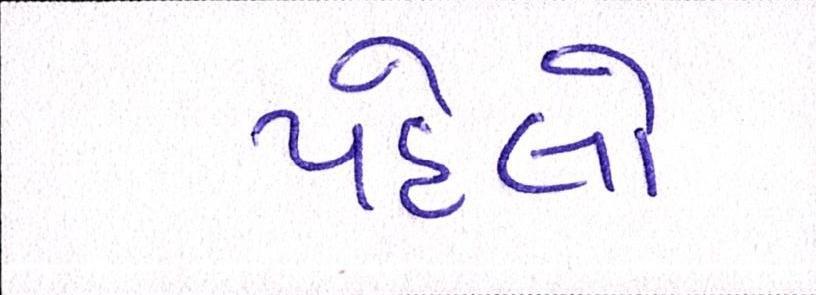 પહેલો